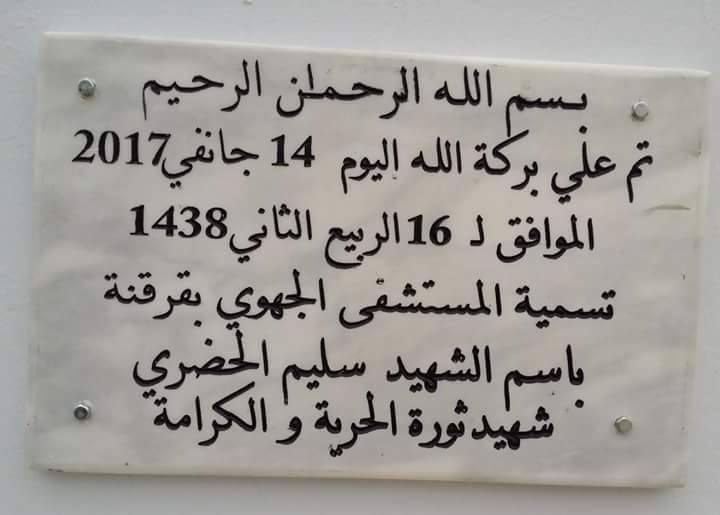 بسم الله الرحمان الرحيم
تم علي بركة الله اليوم 14 جانفي2017
الموافق لـ 16 الربيع الثاني1438
تسمية المستشفى الجهوي بقرقنة
باسم الشهيد سليم الحضري
شهيد ثورة الحرية و الكرامة